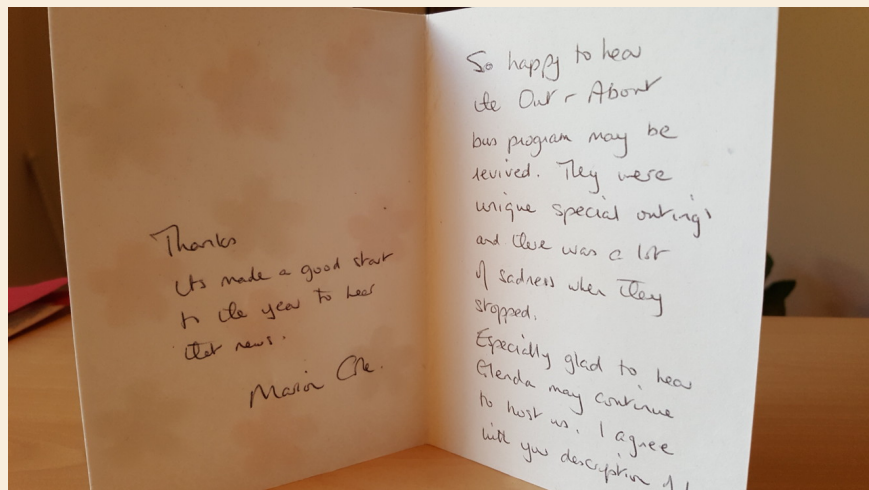 Thanks
Its made a good start
to the year to hear
that news.
Marion
So happy to hear
the Out & About
bus program may be
revived. They were
unique special outings
and there was a lot
of sadness when they
stopped.
Especially glad to hear
Glenda may continue
to host us. I agree
with your description of